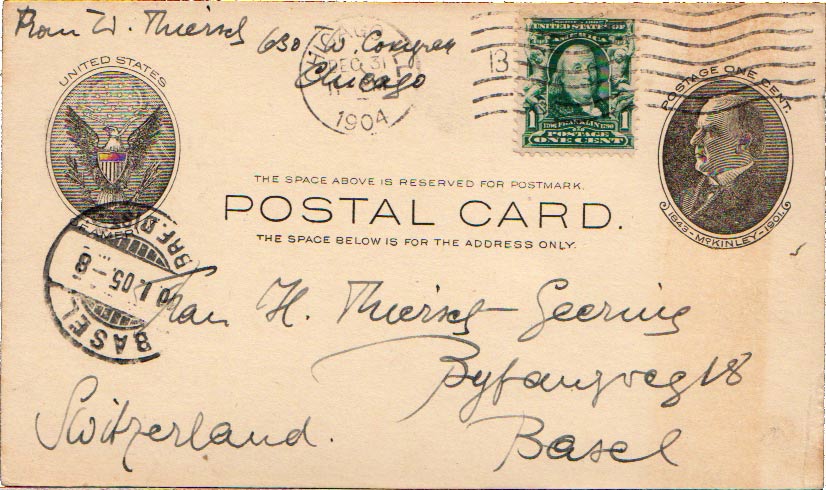 From W. Thiersch
630 W. Congress
Chicago
CHICAGO
DEC 31
1904
13
UNITED STATES OF AMERICA
1706 FRANKLIN 1790
POSTAGE
1 ONE CENT 1
UNITED STATES
POSTAGE ONE CENT.
1843-McKINLEY-1901
THE SPACE ABOVE IS RESERVED FOR POSTMARK.
POSTAL CARD.
THE SPACE BELOW IS FOR THE ADDRESS ONLY.
BASEL
05-8
BRF.
Frau H. Thiersch-Geering
Byfangweg 18
Basel
Switzerland.